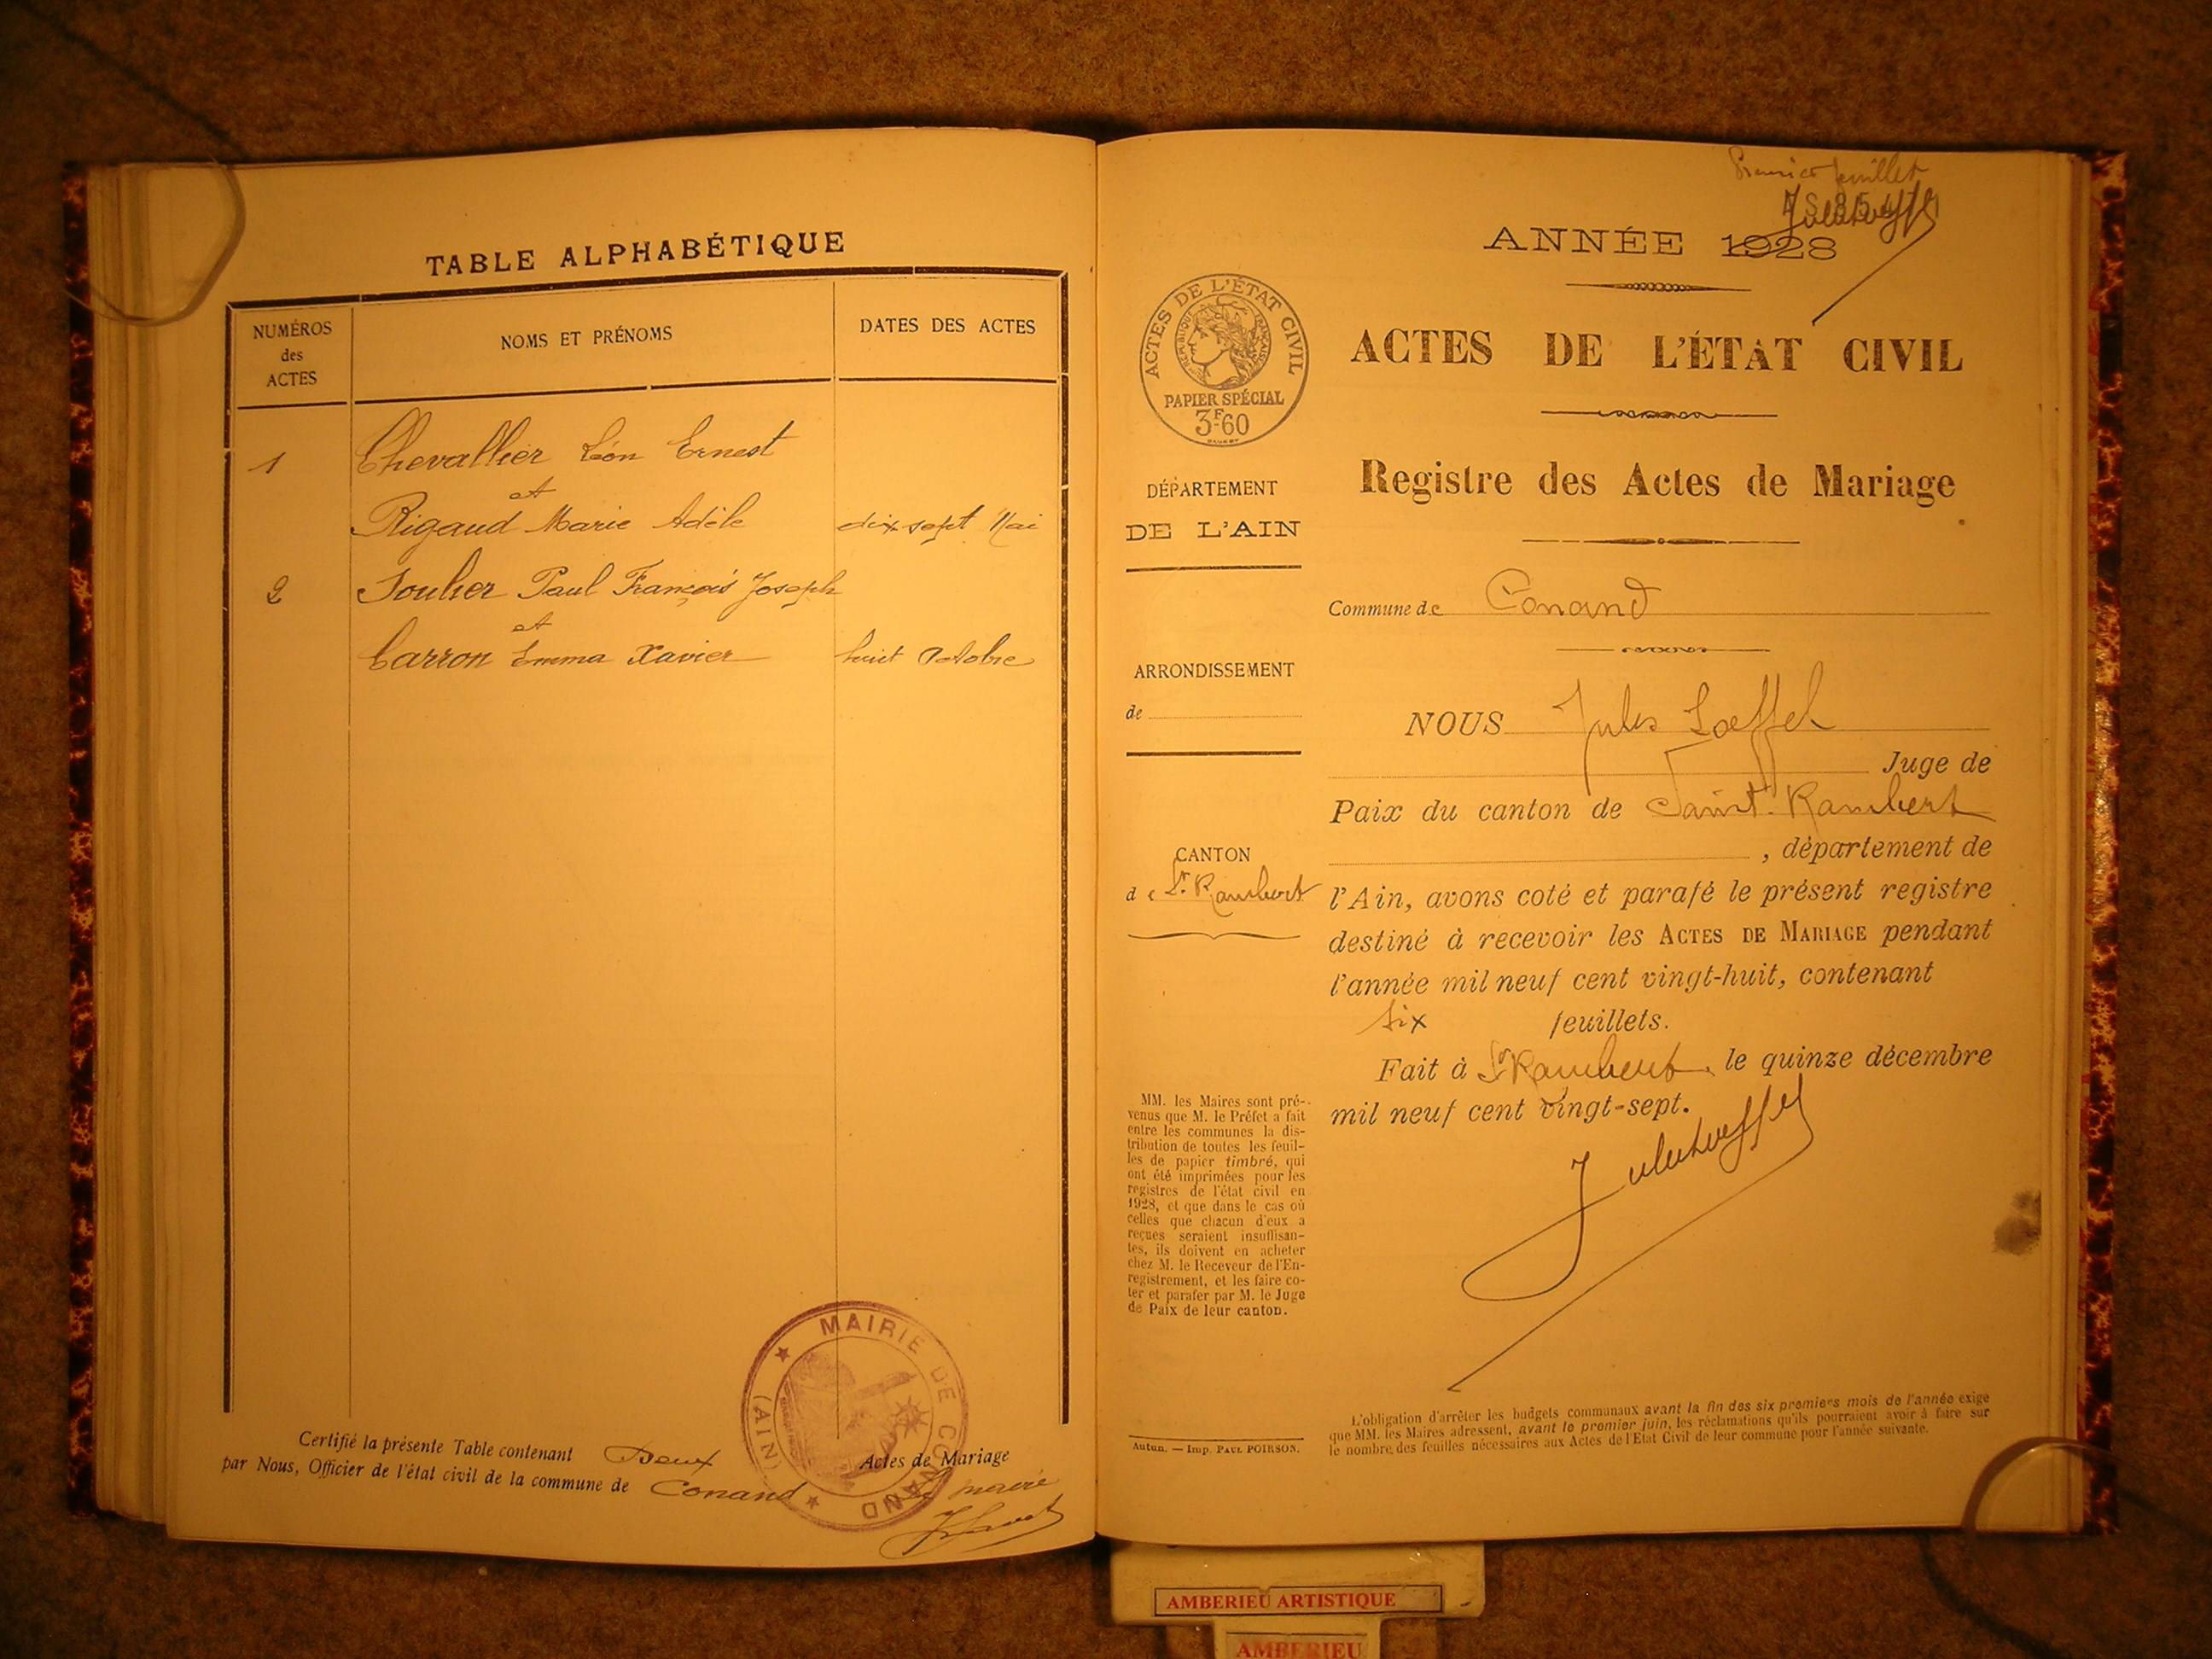 TABLE ALPHABÉTIQUE
NUMÉROS
des
ACTES
NOMS ET PRÉNOMS
DATES DES ACTES
1
Chevallier Léon Ernest
et
Rigaud Marie Adèle
dix sept Mai
2
Soulier Paul François Joseph
et
Carron Emma Xavier
huit Octobre
MAIRIE DE CONAND
(AIN)
Certifié la présente Table contenant Deux Actes de Mariage
par Nous, Officier de l'état civil de la commune de Conand
maire
Premier feuillet
ANNÉE 1928
ACTES DE L'ÉTAT CIVIL
RÉPUBLIQUE FRANÇAISE
PAPIER SPÉCIAL
3F60
ACTES DE L'ÉTAT CIVIL
Registre des Actes de Mariage
DÉPARTEMENT
DE L'AIN
ARRONDISSEMENT
de
CANTON
de St. Rambert
MM. les Maires sont pré-
venus que M. le Préfet a fait
entre les communes la dis-
tribution de toutes les feuil-
les de papier timbré, qui
ont été imprimées pour les
registres de l'état civil en
1928, et que dans le cas où
celles que chacun d'eux a
reçues seraient insuffisan-
tes, ils doivent en acheter
chez M. le Receveur de l'En-
registrement, et les faire co-
ter et parafer par M. le Juge
de Paix de leur canton.
Autun. — Imp. PAUL POIRSON.
Commune de Conand
NOUS Jules Loeffel
Juge de
Paix du canton de Saint-Rambert
, département de
l'Ain, avons coté et parafé le présent registre
destiné à recevoir les ACTES DE MARIAGE pendant
l'année mil neuf cent vingt-huit, contenant
six feuillets.
Fait à St Rambert, le quinze décembre
mil neuf cent vingt-sept.
Jules Loeffel
L'obligation d'arrêter les budgets communaux avant la fin des six premiers mois de l'année exige
que MM. les Maires adressent, avant le premier juin, les réclamations qu'ils pourraient avoir à faire sur
le nombre des feuilles nécessaires aux Actes de l'Etat Civil de leur commune pour l'année suivante.
AMBERIEU ARTISTIQUE
AMBERIEU